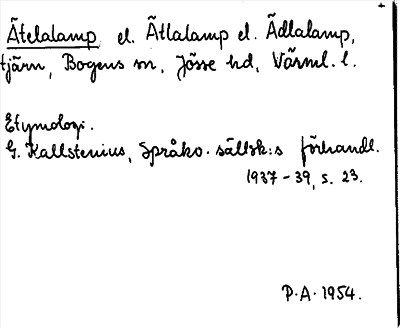 Ätelalamp el. Ätlalamp el. Ädlalamp,
tjärn, Bogens sn, Jösse hd, Värml. l.
Etymologi.
G. Kallstenius, Språkv. sällsk:s förhandl.
1937-39, s. 23.
P.A. 1954.